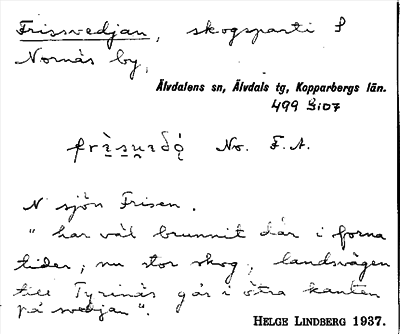 Frissvedjan, skogsparti S
Nornäs by,
Älvdalens sn, Älvdals tg, Kopparbergs län.
499 Si07
No. F. A.
N sjön Frisen.
" har väl brunnit där i forna
tider; nu stor skog; landsvägen
till Tyrinäs går i östra kanten
på svedjan".
HELGE LINDBERG 1937.